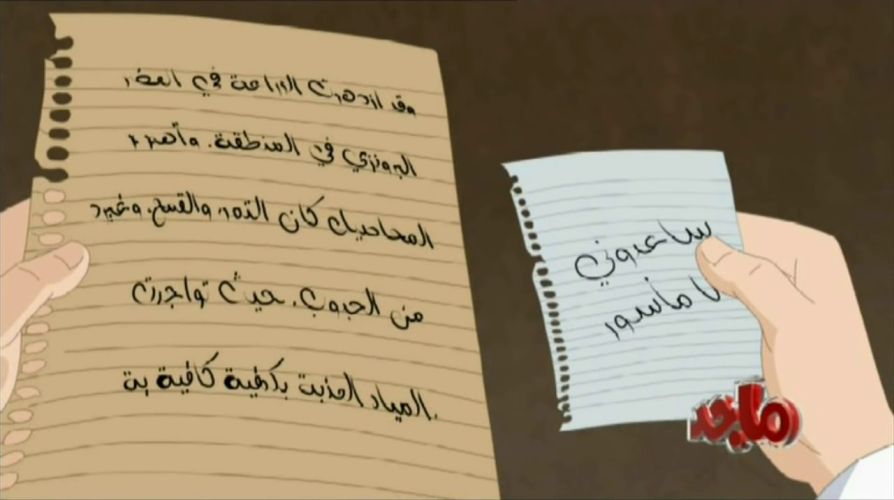 وقد ازدهرت الزراعة في العصر
البرونزي في المنطقة. وأهم
المحاصيل كان التمر والقمح. وغيره
من الحبوب. حيث تواجدت
المياه العذبة بكمية كافية
ساعدوني
ماجد